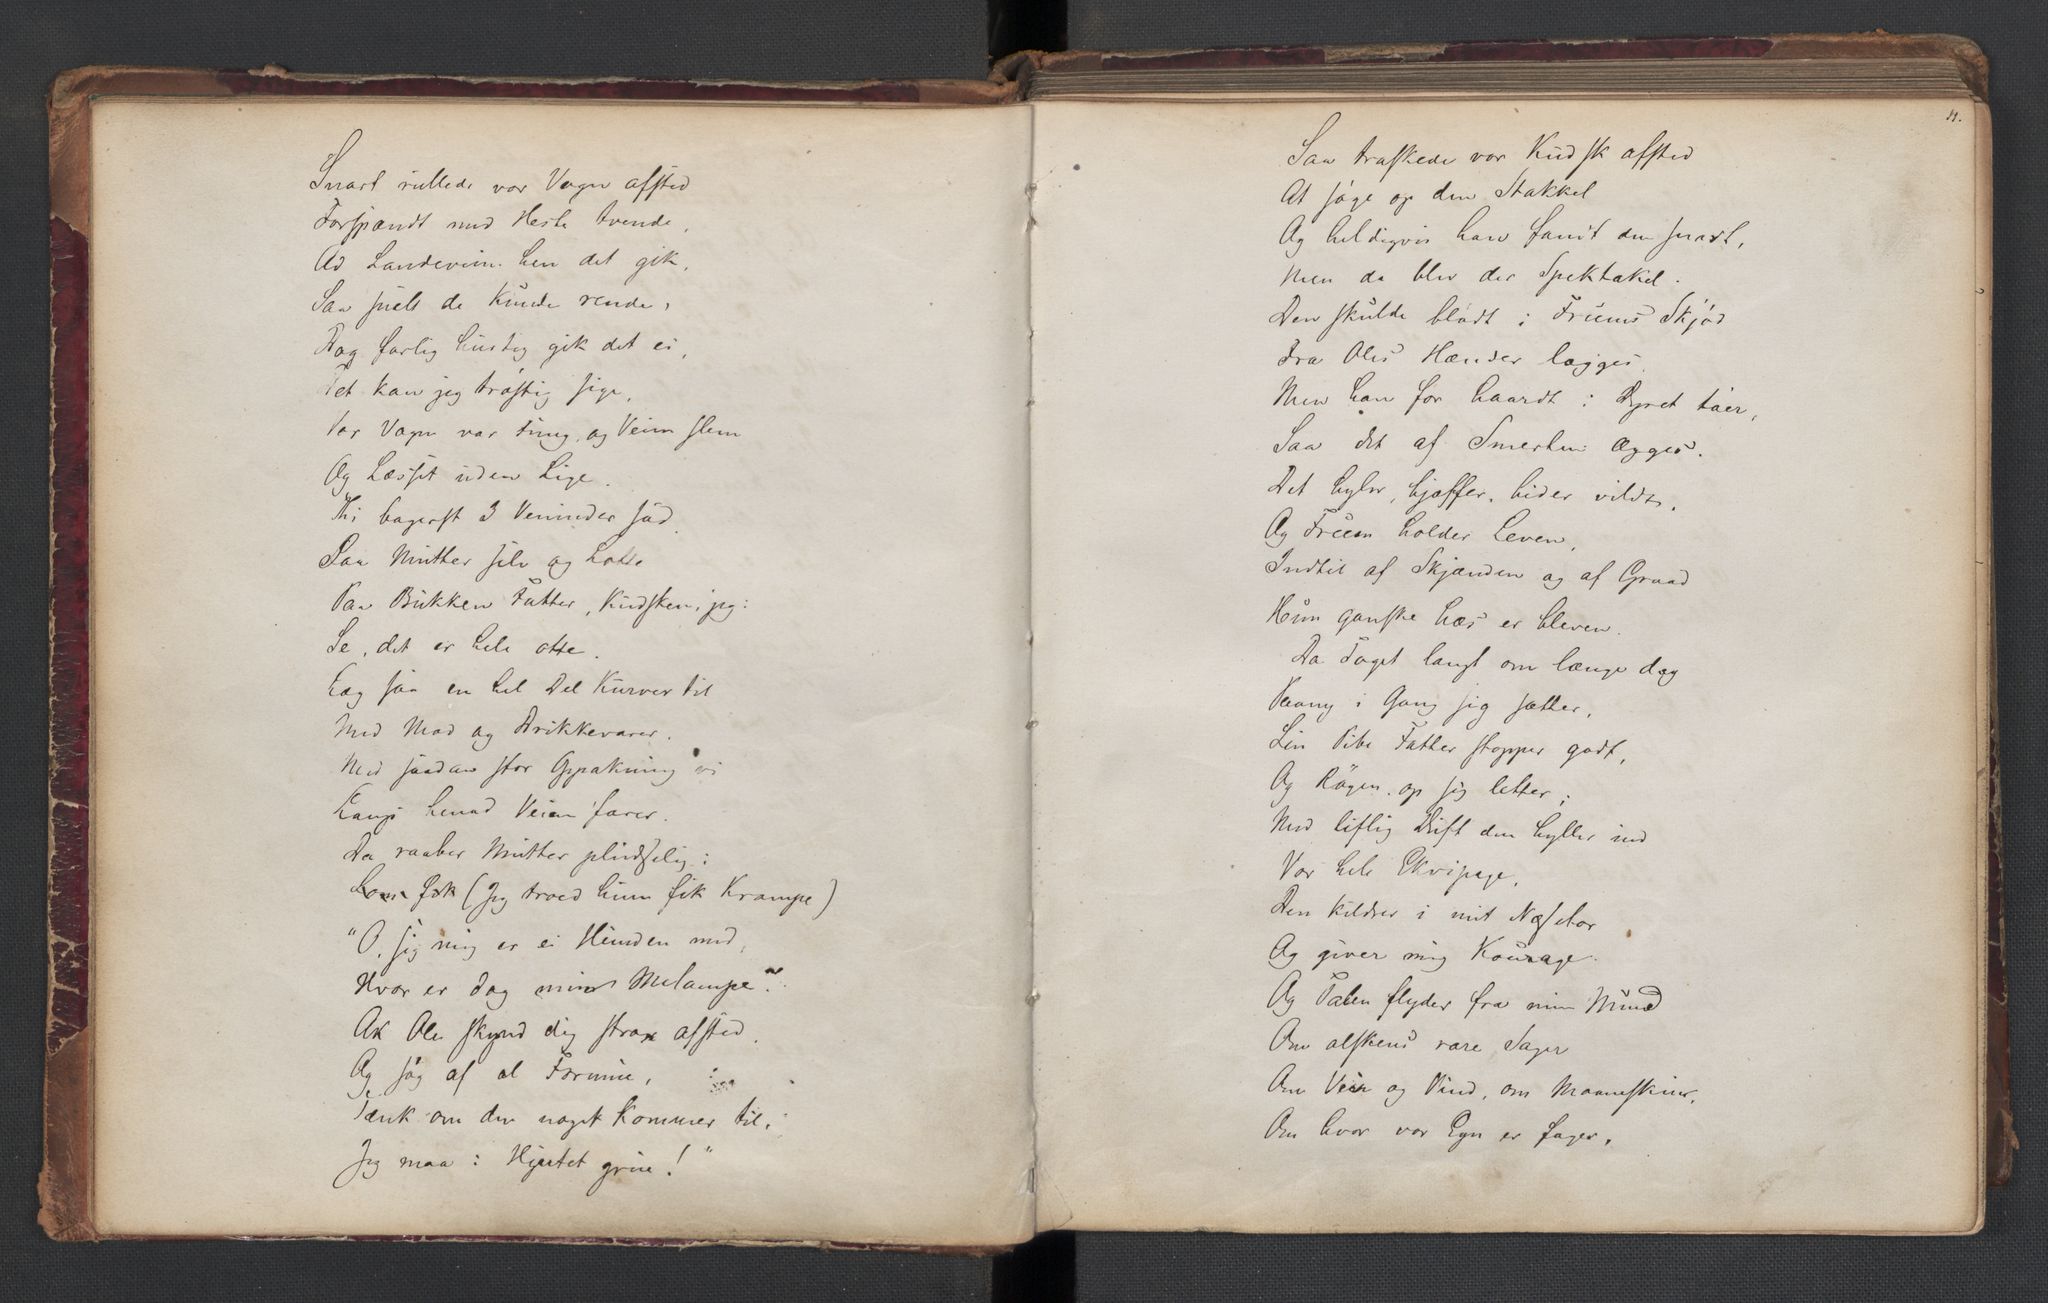 Snart rullede vor Vogn afsted
Forspændt med Heste tvende,
Ad Landeveien hen det gik,
Saa snelt de kunde rende,
Dog farlig hurtig gik det ei,
Det kan jeg trøstig sige,
Vor Vogn var tung, og Veien slem
Og Læsset uden Lige.
Thi bagerst 3 Veninder sad
Saa Mutter selv og Lotte
Paa Bukken Fatter, Kudsken, jeg:
Se, det er hele otte.
Læg saa en hel Del Kurver til
Med Mad og Drikkevarer.
Med saadan stor Oppakning vi
Langs henad Veien farer.
Da raaber Mutter pludselig:
fik (Jeg troed hun fik Krampe)
"O, sig mig er ei Hunden med,
Hvor er dog min Melampe".
Ak Ole skynd dig strax afsted,
Og søg af al Formue,
Tænk om den noget kommer til,
Jeg maa i Hjertet grue!"
11.
Saa traskede vor Kudsk afsted
At søge op den Stakkel
Og heldigvis han fandt den snart,
Men da blev der Spektakel.
Den skulde blødt i Fruens Skjød
Fra Oles Hænder lægges,
Men han for haardt i Dyret taer,
Saa det af Smerten ægges.
Det hyler, bjæffer, bider vildt,
Og Fruen holder Leven,
Indtil af Skjænden og af Graad
Hun ganske hæs er bleven.
Da Toget langt om længe dog
Paany i Gang sig sætter,
Sin Pibe Fatter stopper godt,
Og Røgen op sig letter;
Med liflig Duft den hyller ind
Vor hele Ekvipage,
Den kildrer i mit Næsebor
Og giver mig Kourage.
Og Talen flyder fra min Mund
Om alskens rare Sager
Om Veir og Vind, om Maaneskin,
Om hvor vor Egn er fager,